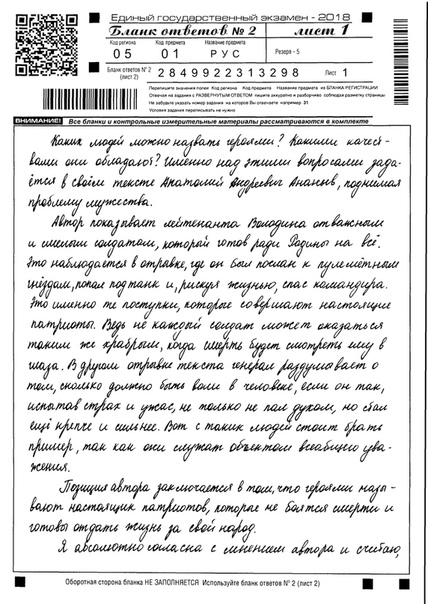 Единый государственный экзамен - 2018
Бланк ответов № 2 лист 1
Код региона Код предмета Название предмета
05 01 РУС Резерв - 5
Бланк ответов № 2 (лист 2) 2849922313298 Лист 1
Перепишите значения полей Код региона Код предмета Название предмета из БЛАНКА РЕГИСТРАЦИИ
Отвечая на задания с РАЗВЕРНУТЫМ ОТВЕТОМ пишите аккуратно и разборчиво соблюдая разметку страницы
Не забудьте указать номер задания на которое Вы отвечаете например 31
Условия задания переписывать не нужно
ВНИМАНИЕ! Все бланки и контрольные измерительные материалы рассматриваются в комплекте
Каких людей можно назвать героями? Какими качест-
вами они обладают? Именно над этими вопросами зада-
ётся в своём тексте Анатолий Андреевич Ананьев, поднимая
проблему мужества.
Автор показывает лейтенанта Володина отважным
и смелым солдатом, который готов ради Родины на всё.
Это наблюдается в отрывке, где он был послан к пулемётным
гнёздам, попал под танк и, рискуя жизнью, спас командира.
Это именно те поступки, которые совершают настоящие
патриоты. Ведь не каждый солдат может оказаться
таким же храбрым, когда смерть будет смотреть ему в
глаза. В другом отрывке текста генерал раздумывает о
том, сколько должно быть воли в человеке, если он так,
испытав страх и ужас, не только не пал духом, но стал
ещё крепче и сильнее. Вот с таких людей стоит брать
пример, так как они служат объектом всеобщего ува-
жения.
Позиция автора заключается в том, что героями назы-
вают настоящих патриотов, которые не боятся смерти и
готовы отдать жизнь за свой народ.
Я абсолютно согласна с мнением автора и считаю,
Оборотная сторона бланка НЕ ЗАПОЛНЯЕТСЯ Используйте бланк ответов № 2 (лист 2)